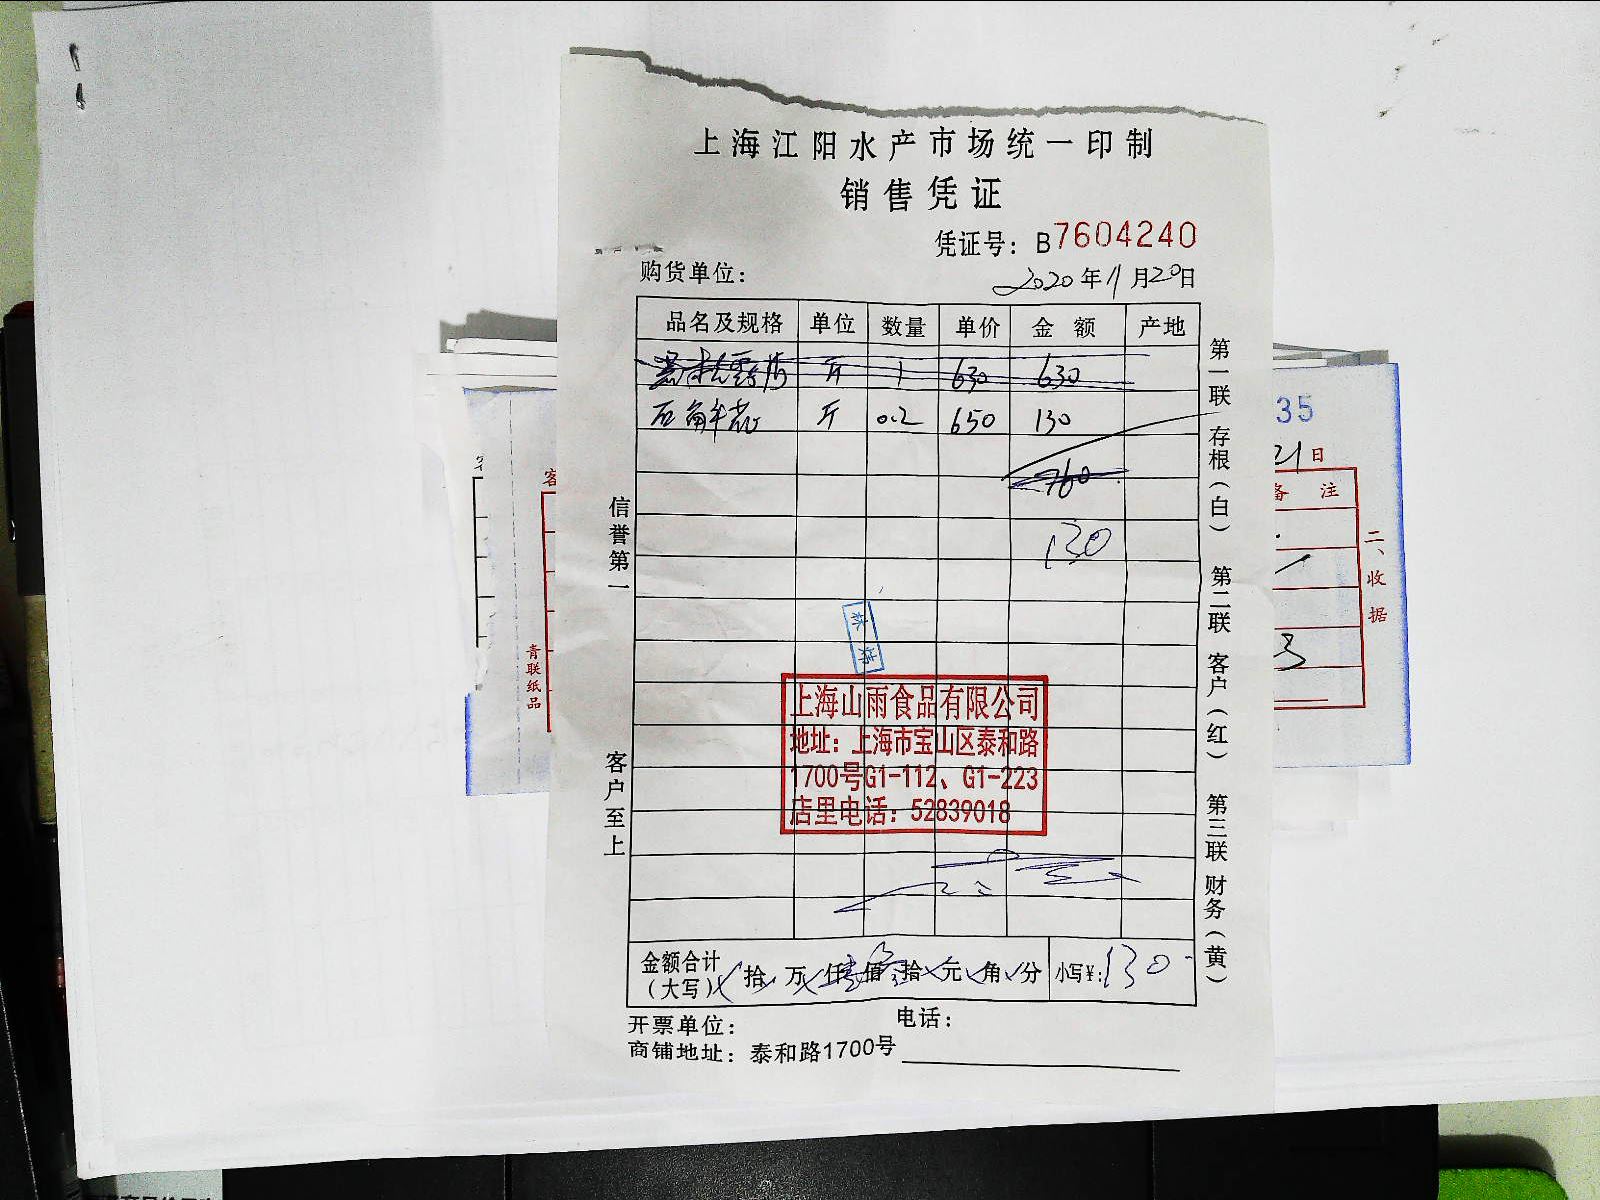 上海江阳水产市场统一印制
销售凭证
凭证号：B7604240
购货单位：
2020年11月20日
品名及规格 单位 数量 单价 金额 产地
斤 1 630 630
石斛花 斤 0.2 650 130
760
130
信誉第一
客户至上
第一联 存根（白） 第二联 客户（红） 第三联 财务（黄）
上海山雨食品有限公司
地址：上海市宝山区泰和路
1700号G1-112、G1-223
店里电话：52839018
金额合计
（大写） 拾 万 仟 佰 拾 元 角 分 小写¥：130
开票单位：
电话：
商铺地址：泰和路1700号
35
21日
备注
二、收据
3
客
青联纸品